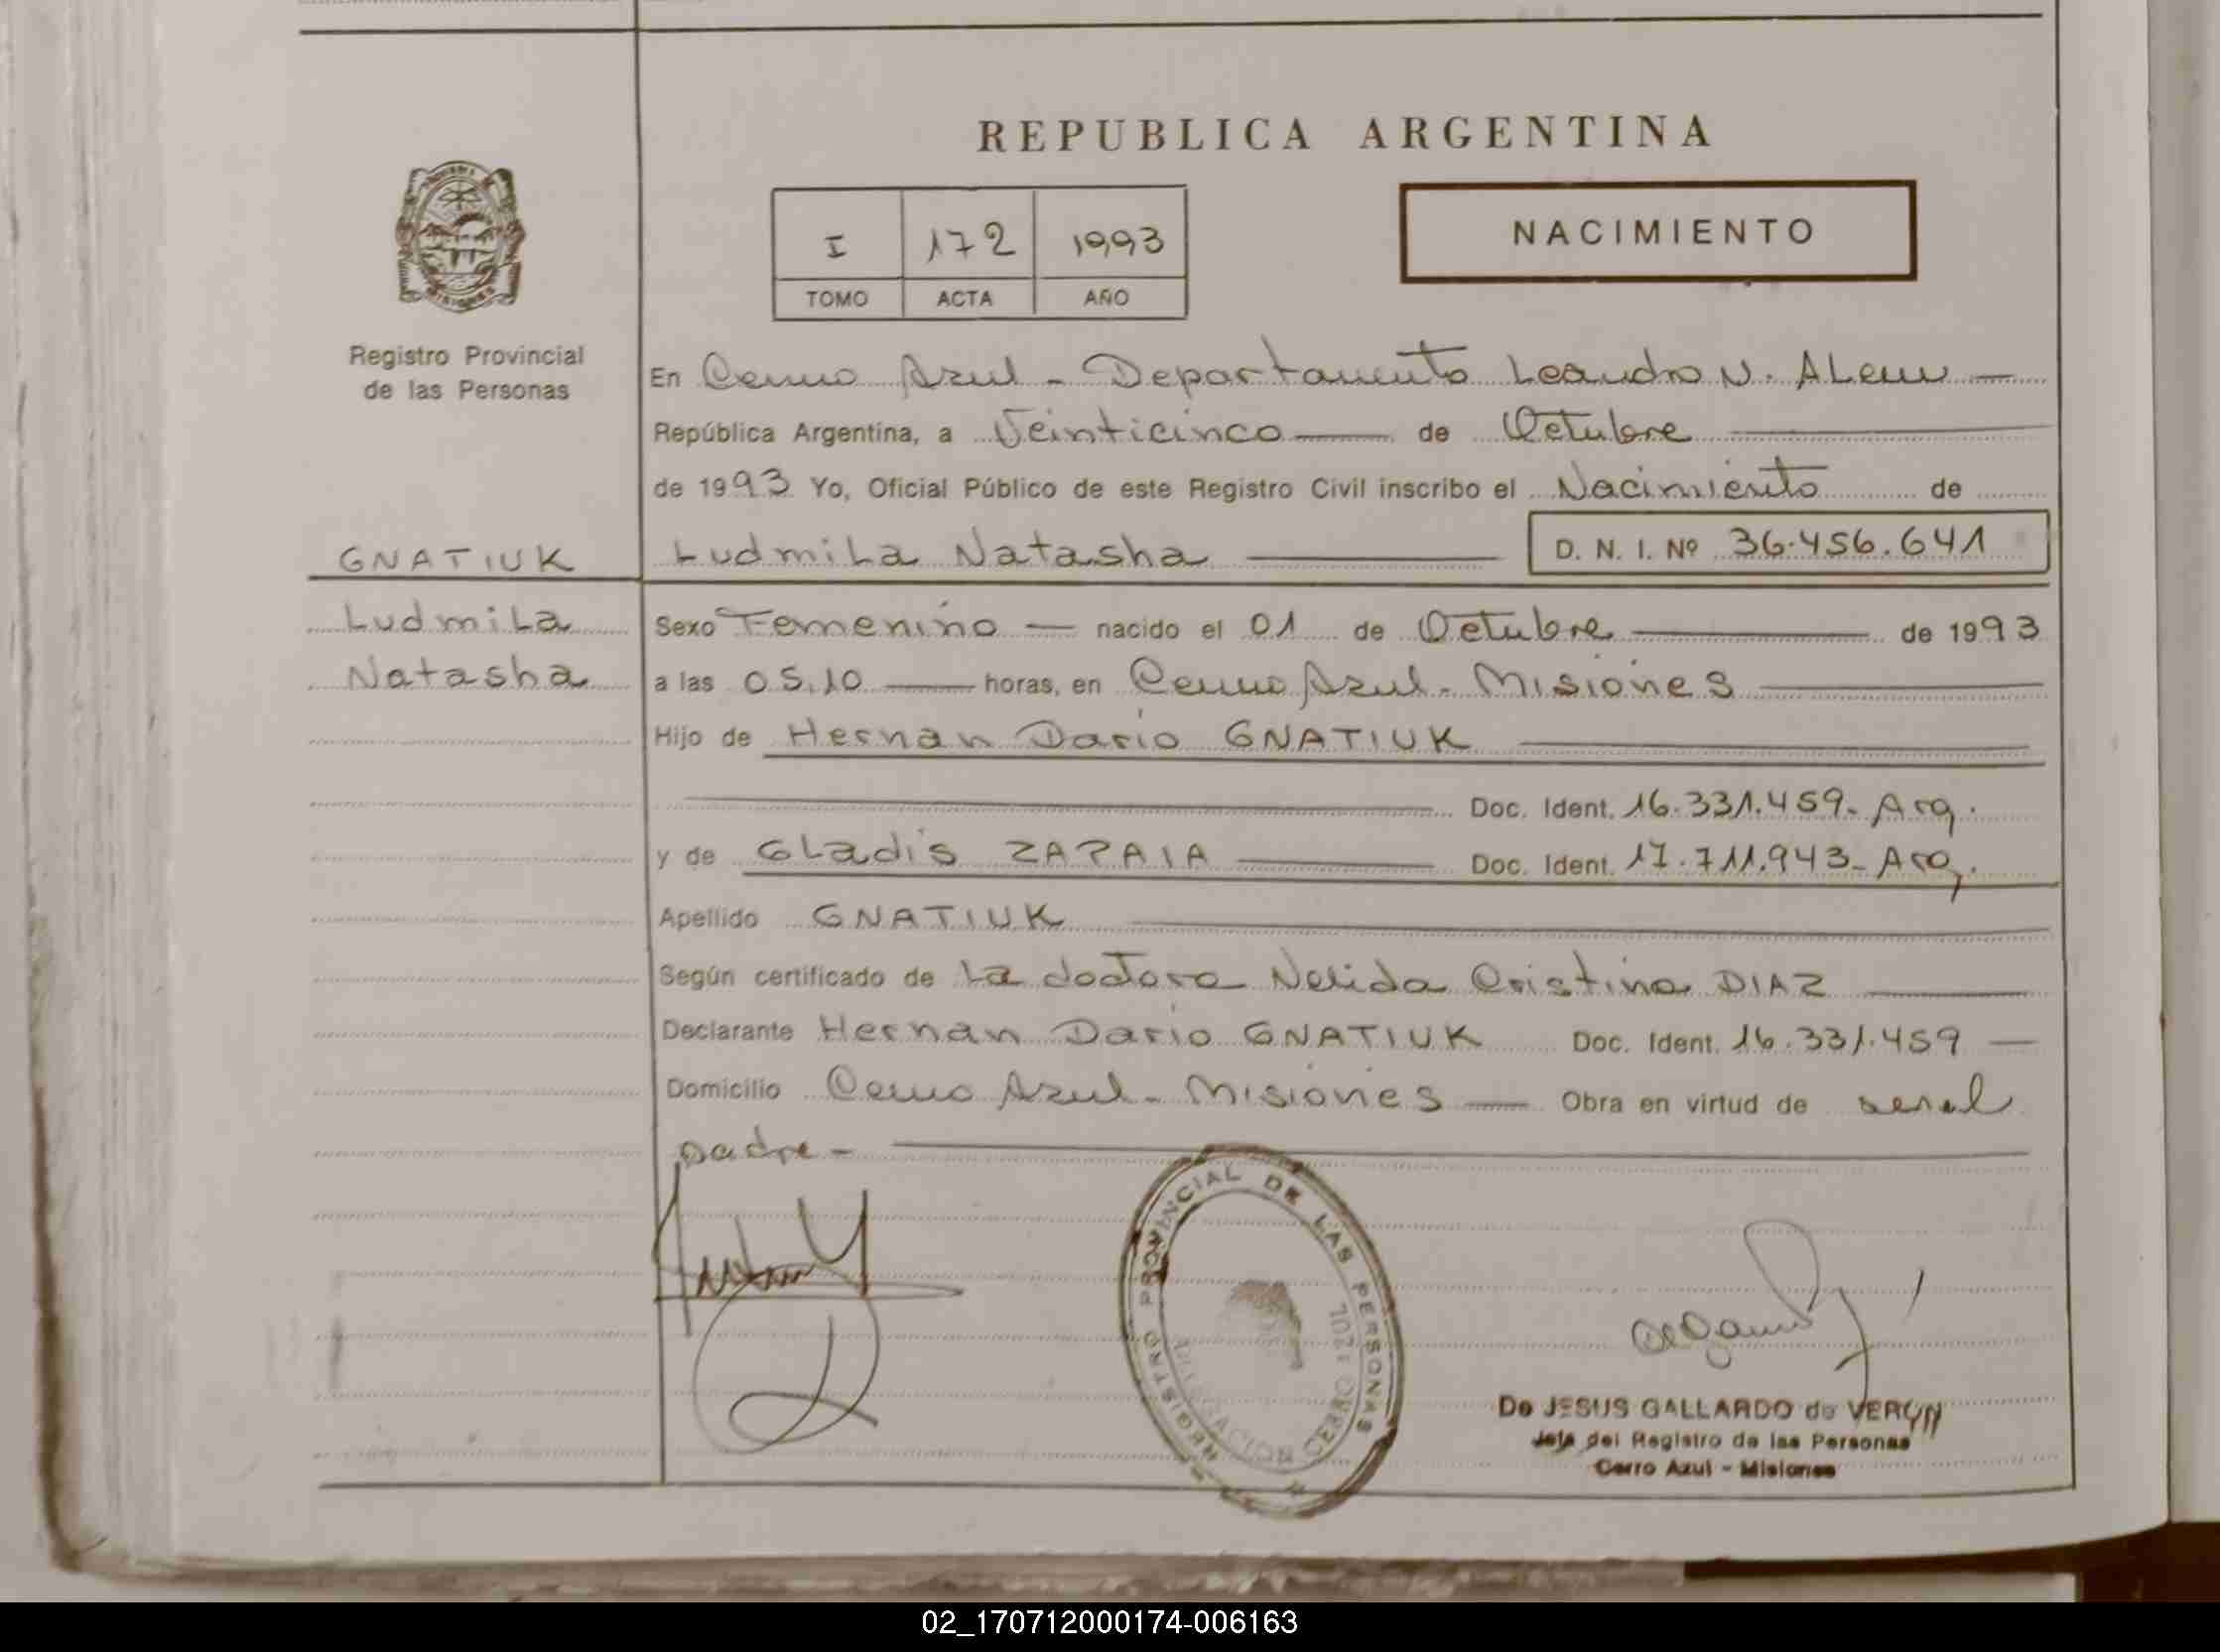 REPUBLICA ARGENTINA
I 172 1993
TOMO ACTA AÑO
NACIMIENTO
Registro Provincial
de las Personas
En Cerro Azul - Departamento Leandro N. ALem —
República Argentina, a Veinticinco — de Octubre
de 1993 Yo, Oficial Público de este Registro Civil inscribo el Nacimiento de
GNATIUK
Ludmila Natasha — D. N. I. Nº 36.456.641
Ludmila
Natasha
Sexo Femenino — nacido el 01 de Octubre — de 1993
a las 05.10 — horas, en Cerro Azul - Misiones —
Hijo de Hernan Dario GNATIUK —
Doc. Ident. 16.331.459- Arg.
y de Gladis ZAPAIA — Doc. Ident. 17.711.943- Arg.
Apellido GNATIUK
Según certificado de La doctora Nelida Cristina DIAZ —
Declarante Hernan Dario GNATIUK Doc. Ident. 16.331.459 —
Domicilio Cerro Azul - Misiones — Obra en virtud de ser el
padre -
REGISTRO PROVINCIAL DE LAS PERSONAS
CERRO AZUL
De JESUS GALLARDO de VERON
Jefa del Registro de las Personas
Cerro Azul - Misiones
02_170712000174-006163